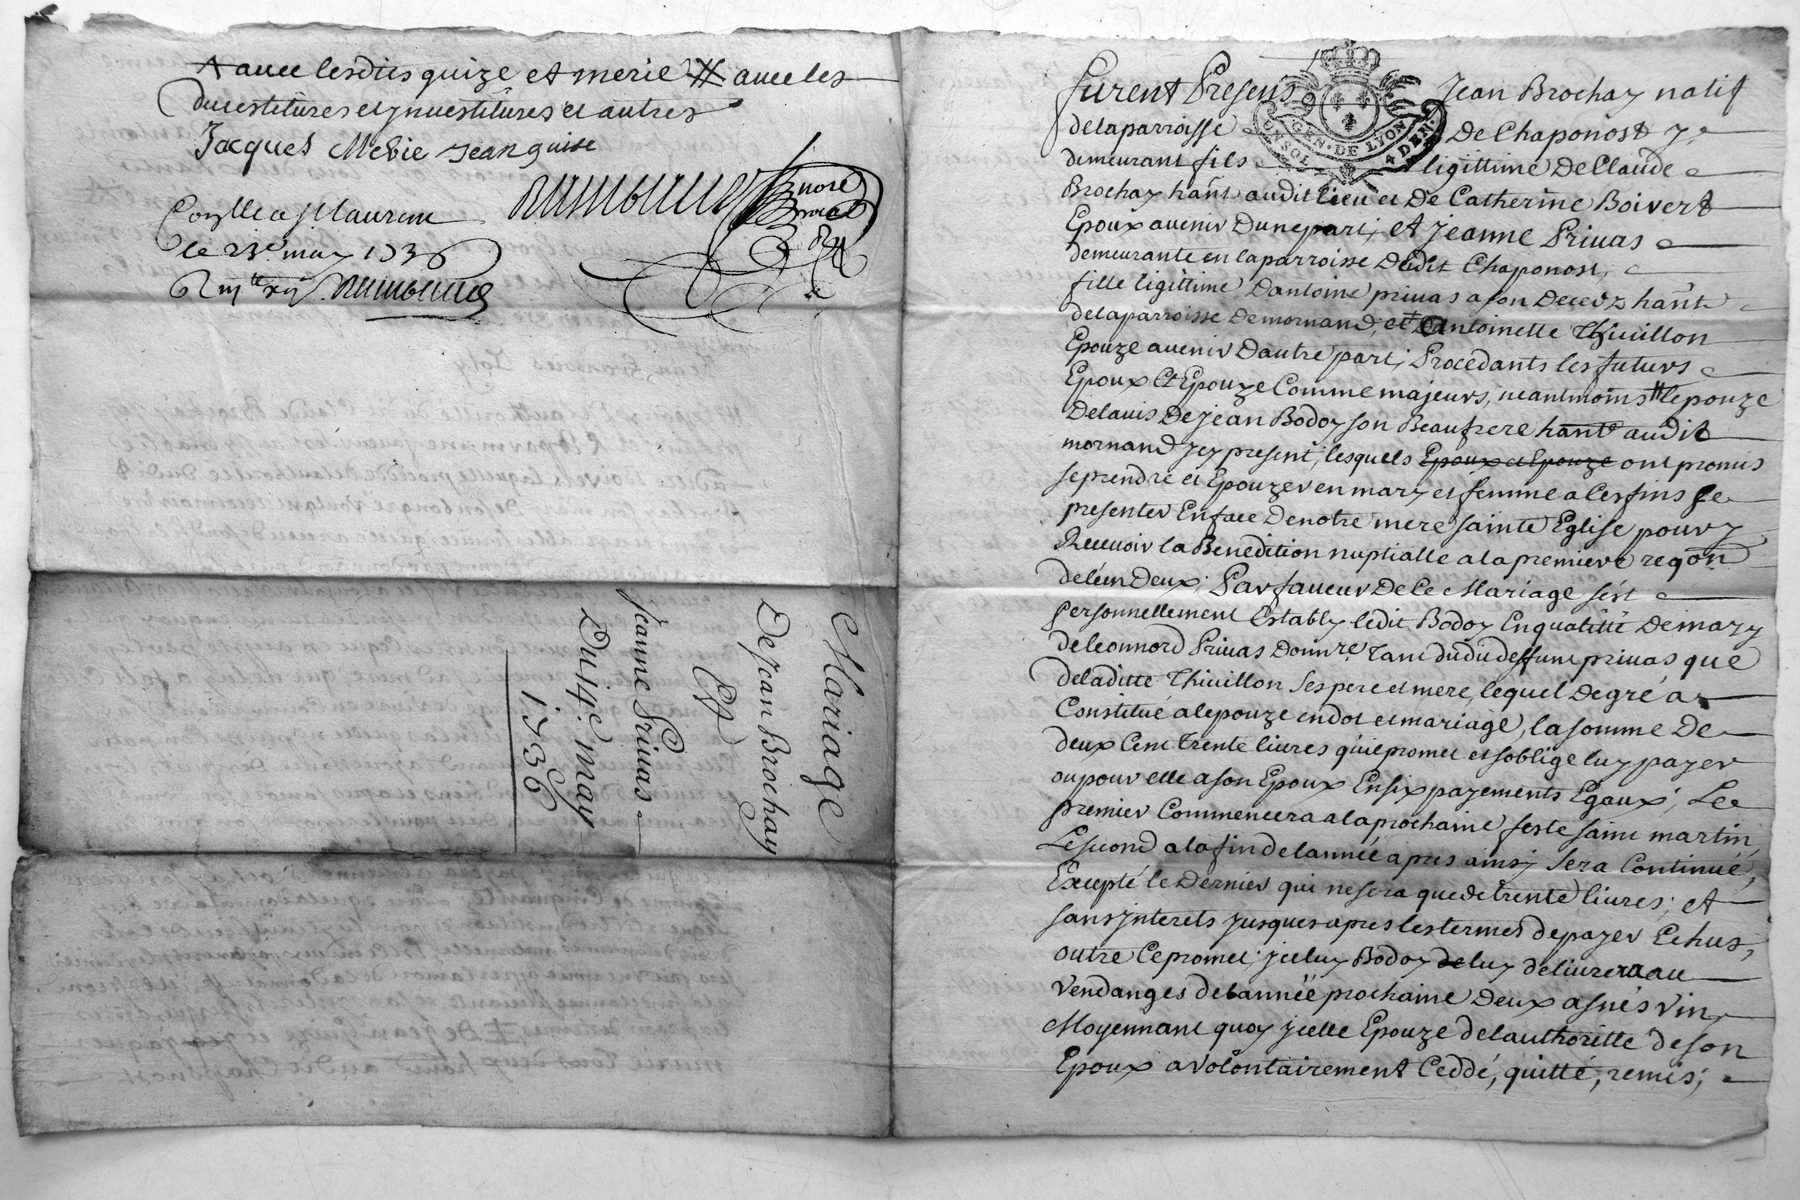 avec lesdits guize et merie # avec les
devestitures et ynvestitures et autres
Jacques Merie Jean guise
nore
le 23e may 1736
Mariage
De Jean Brochay
Et
Jeanne Privas
Du 14e may
1736
furent Presens Jean Brochay natif
delaparroisse De Chaponost y
demeurant fils legittime De Claude
Brochay hant audit lieu et De Catherine Boivert
Epoux avenir Dunepart; et Jeanne Privas
demeurante en laparroisse Dudit Chaponost,
fille ligittime Dantoine privas a son Decedz hant
delaparroisse demornand, et Dantoinette Thivillon
Epouze avenir Dautre part; Procedants les futurs
Epoux Et Epouze Comme majeurs, neantmoins lepouze
Delavis De jean Bodoy son Beaufrere hant audit
mornand yey present; lesquels Epoux et Epouze ont promis
seprendre et Epouzer en mary et femme a ces fins se
presenter En face Denotre mere sainte Eglise pour y
Recevoir la Benedition nuptialle a la premiere reqon
de lun Deux; Par faveur De Ce Mariage sest
personnellement Estably ledit Bodoy En qualitté De mary
de leonnord Privas Donnre. tant dudu deffunt privas que
deladitte Thivillon ses pere et mere, lequel de gré a
Constitué a lepouze en dot et mariage, la somme De
deux Cent trente livres quil promet et soblige luy payer
ou pour elle a son Epoux En six payements Egaux; Le
premier Commencera a la prochaine feste saint martin,
Le second a la fin de lannée apres ainsy sera Continué,
Excepté le Dernier qui ne sera que de trente livres; et
sans ynterets jusques apres les termes de payer Echus,
outre Ce promet jceluy Bodoy de luy delivrera au
vendanges de lannée prochaine Deux asnés vin,
Moyennant quoy jcelle Epouze de lauthoritté de son
Epoux a volontairement Ceddé, quitté, remis;
GEN. DE LYON
UN SOL 4 DEN.